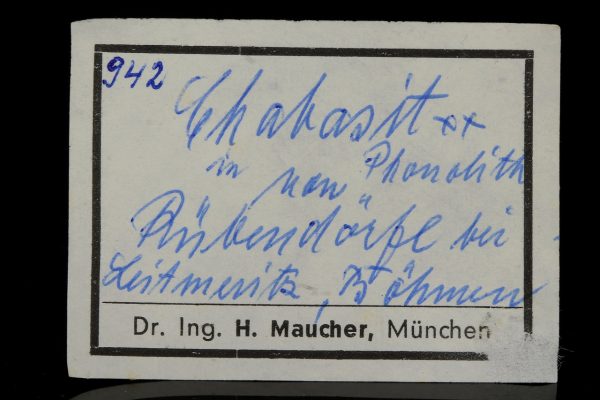 942
Chabasit xx
in von Phonolith
Rübendörfl bei
Leitmeritz, Böhmen
Dr. Ing. H. Maucher, München